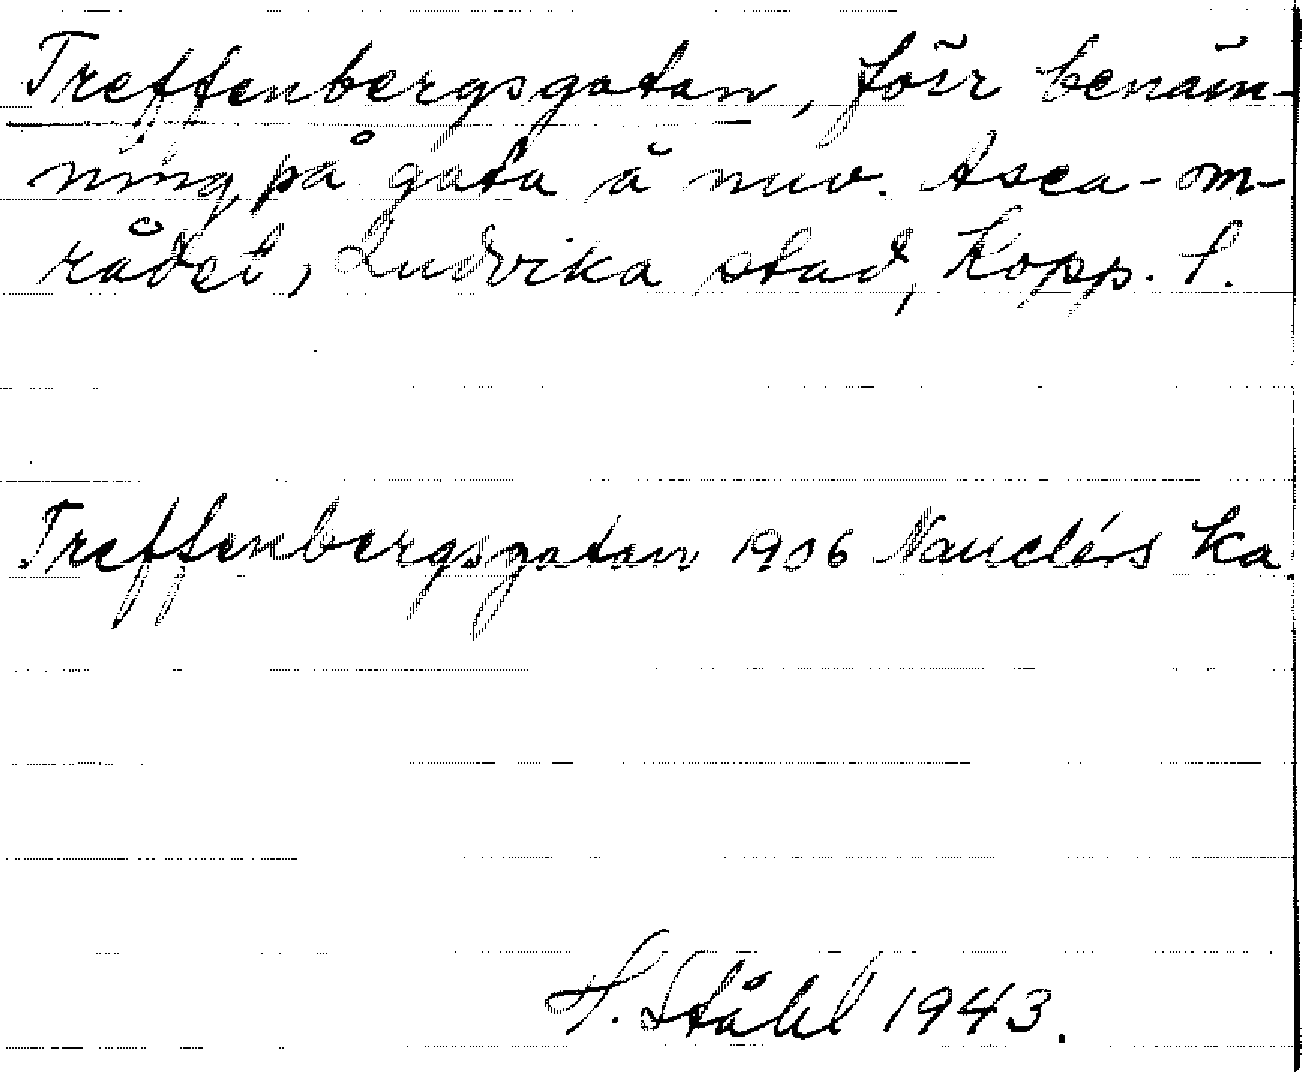 Treffenbergsgatan, förr benäm-
ning på gata å nuv. Asea-om-
rådet, Ludvika stad, Kopp. l.
Treffenbergsgatan 1906 Nauclérs ka
H. Ståhl 1943.